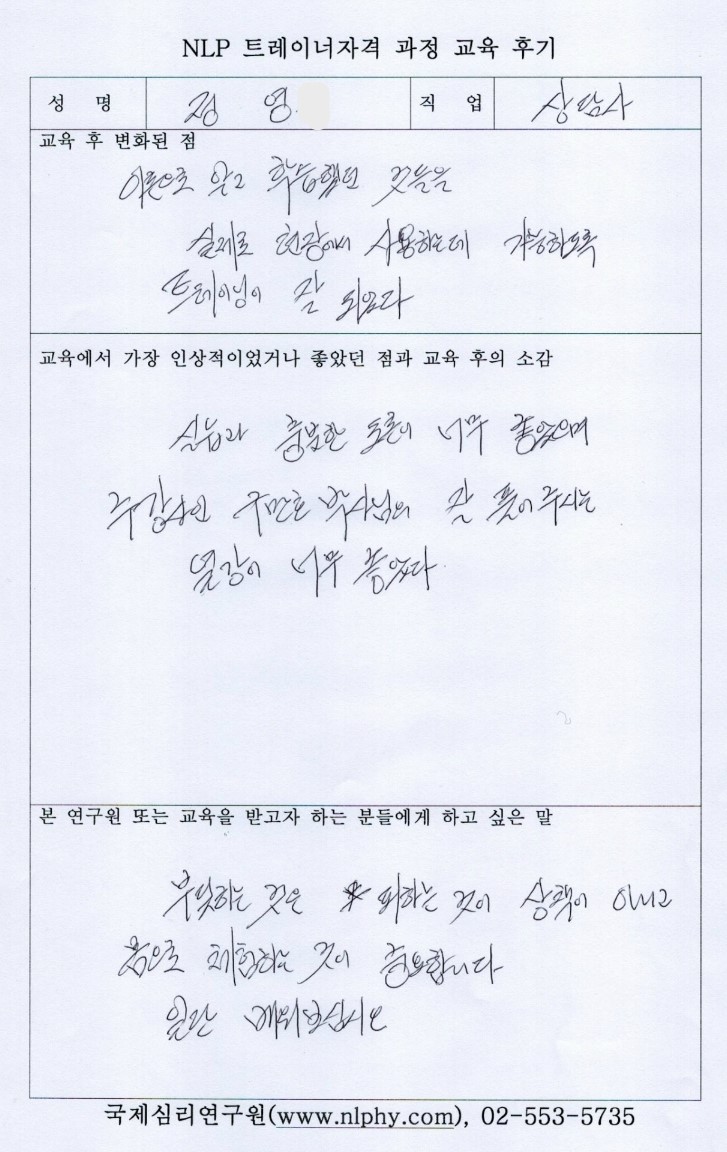 NLP 트레이너자격 과정 교육 후기
성 명 정 영 직 업 상담사
교육 후 변화된 점
이론으로 알고 학습했던 것들을
실제로 현장에서 사용하는데 가능하도록
트레이닝이 잘 되었다
교육에서 가장 인상적이었거나 좋았던 점과 교육 후의 소감
실습과 풍부한 토론이 너무 좋았으며
주강사인 구만호 박사님의 잘 풀어주시는
열강이 너무 좋았다.
본 연구원 또는 교육을 받고자 하는 분들에게 하고 싶은 말
하는 것은 피하는 것이 상책이 아니고
몸으로 체험하는 것이 중요합니다
일단 해보십시오
국제심리연구원(www.nlphy.com), 02-553-5735